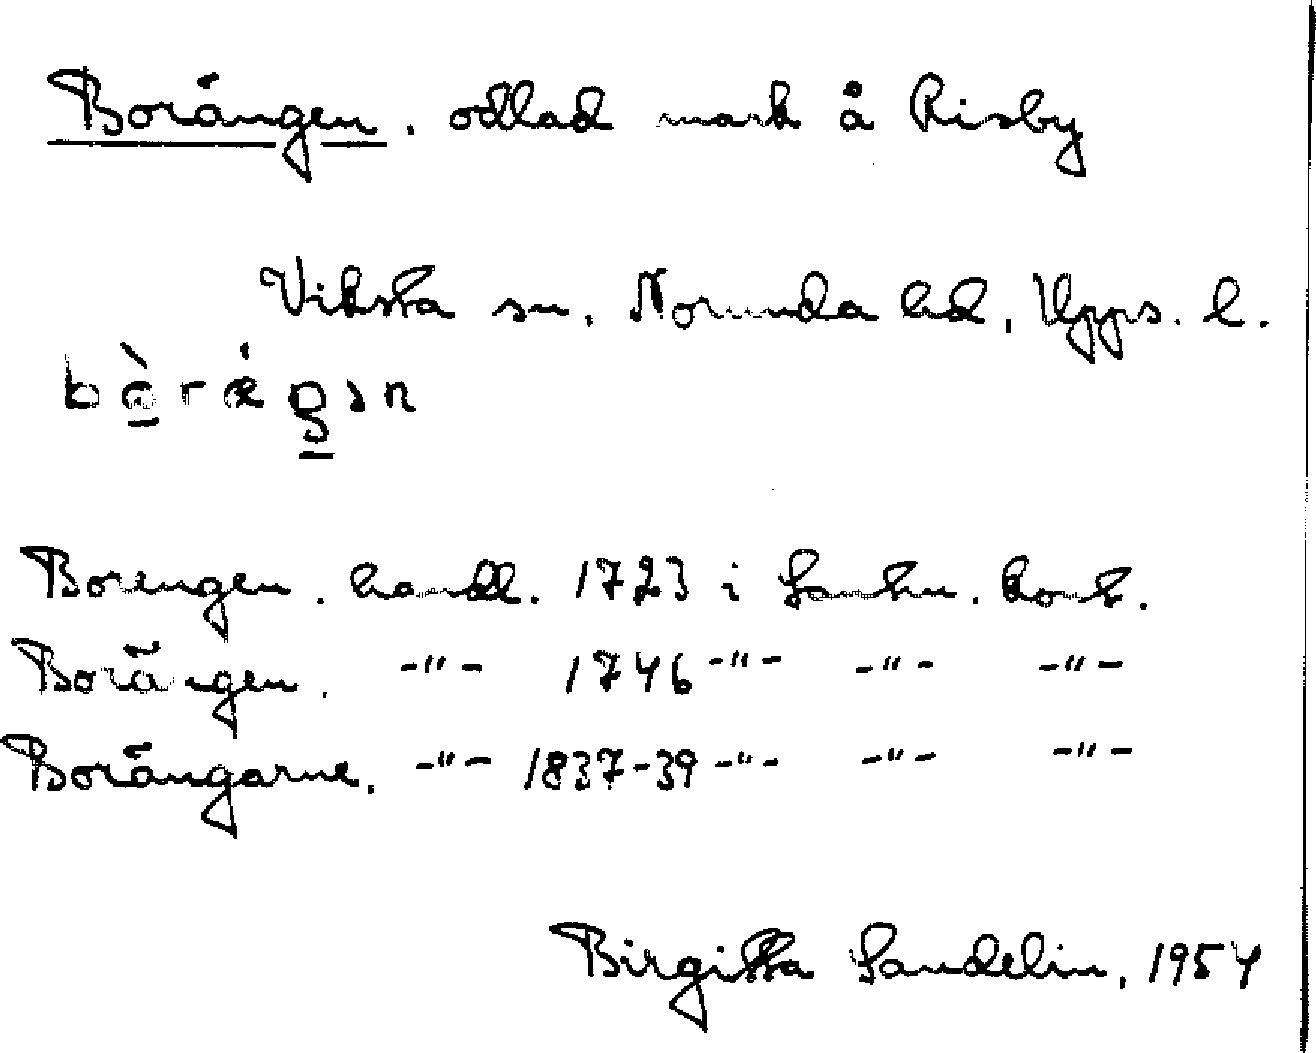 Borängen. odlad mark å Risby
Viksta sn. Norunda hd, Upps. l.
Borengen. handl. 1723 i Lantm. kont.
Borängen. -"- 1746 -"- -"- -"-
Borängarne. -"- 1837-39 -"- -"- -"-
Birgitta Sandelin, 1954